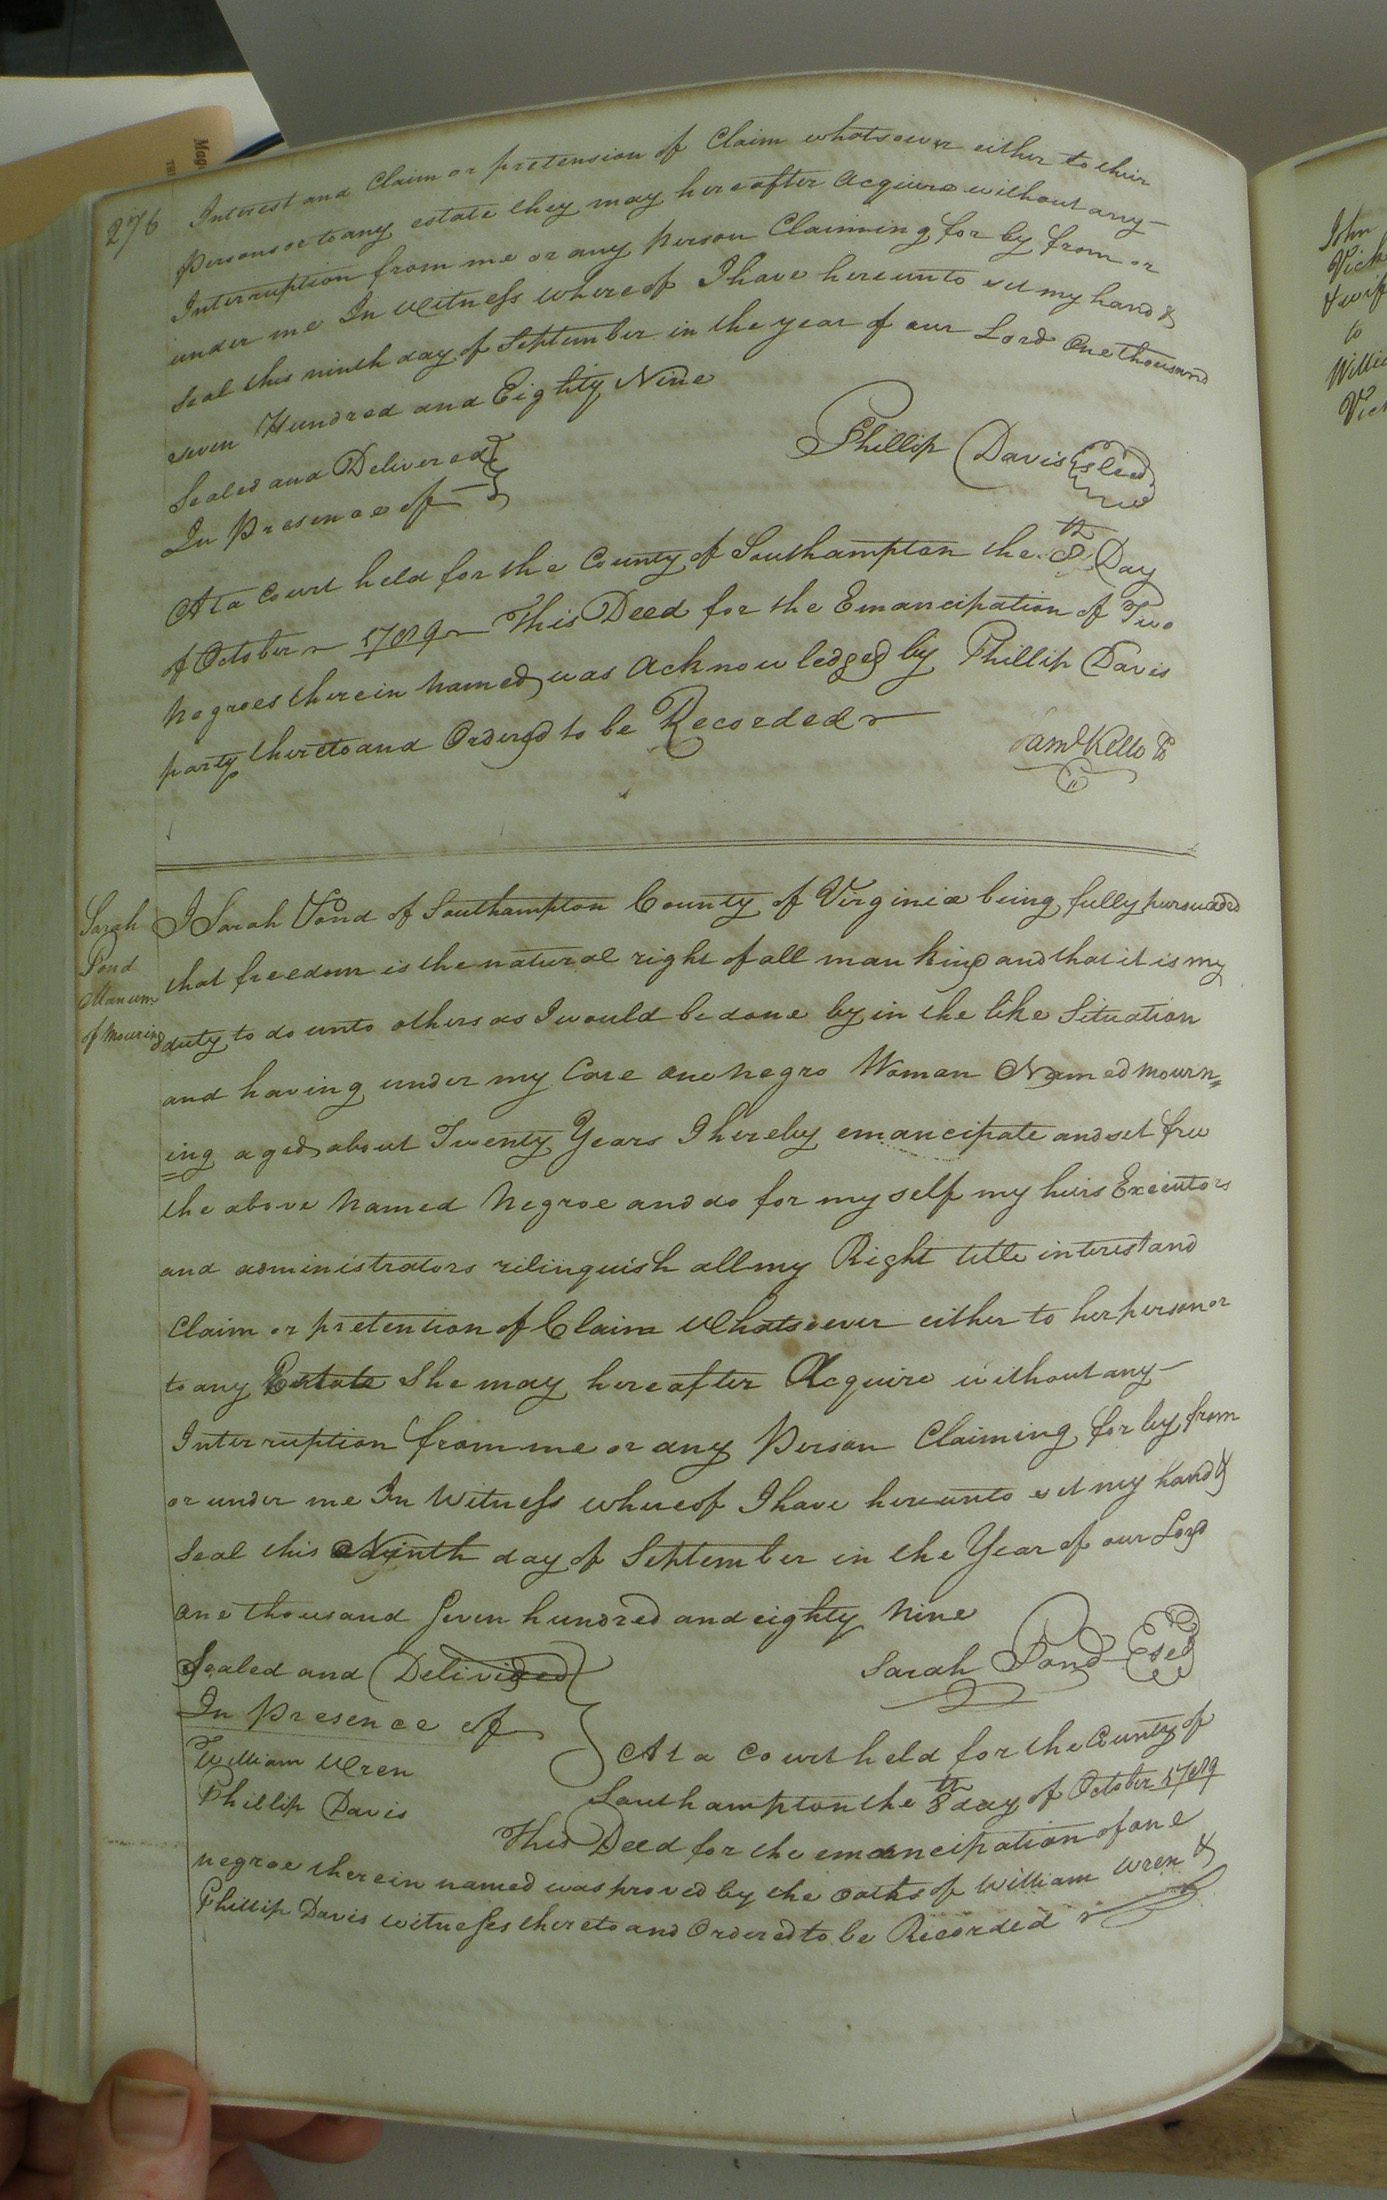 276
Interest and Claim or pretension of Claim whatsoever either to their
persons or to any estate they may hereafter Acquire without any
Interruption from me or any person Claiming for by from or
under me In Witness whereof I have hereunto set my hand &
seal this ninth day of September in the year of our Lord One thousand
seven Hundred and Eighty Nine
Phillip Davis seal
Sealed and Delivered
In Presence of
At a Court held for the County of Southampton the 8th Day
of October 1789 This Deed for the Emancipation of Two
negroes therein named was Acknowledged by Phillip Davis
party thereto and Ordered to be Recorded
Saml Kello
Sarah
Pond
Manum
of Mourning
I Sarah Pond of Southampton County of Virginia being fully pursuaded
that freedom is the natural right of all man kind and that it is my
duty to do unto others as I would be done by in the like Situation
and having under my Care one negro Woman Named mourn=
ing aged about Twenty Years I hereby emancipate and set free
the above Named Negroe and do for my self my heirs Executors
and administrators rilinquish all my Right title interest and
Claim or pretention of Claim Whatsoever either to her person or
to any Estate She may hereafter Acquire without any
Interruption from me or any Person Claiming for by from
or under me In Witness whereof I have hereunto set my hand &
Seal this Ninth day of September in the Year of our Lord
one thousand seven hundred and eighty Nine
Sarah Pond seal
Sealed and Delivired
In Presence of
William Wren
Phillip Davis
At a Court held for the County of
Southampton the 8th day of October 1789
This Deed for the emancipation of one
negroe therein named was proved by the oaths of William Wren &
Phillip Davis witnesses thereto and Ordered to be Recorded
John
Vick
& wife
to